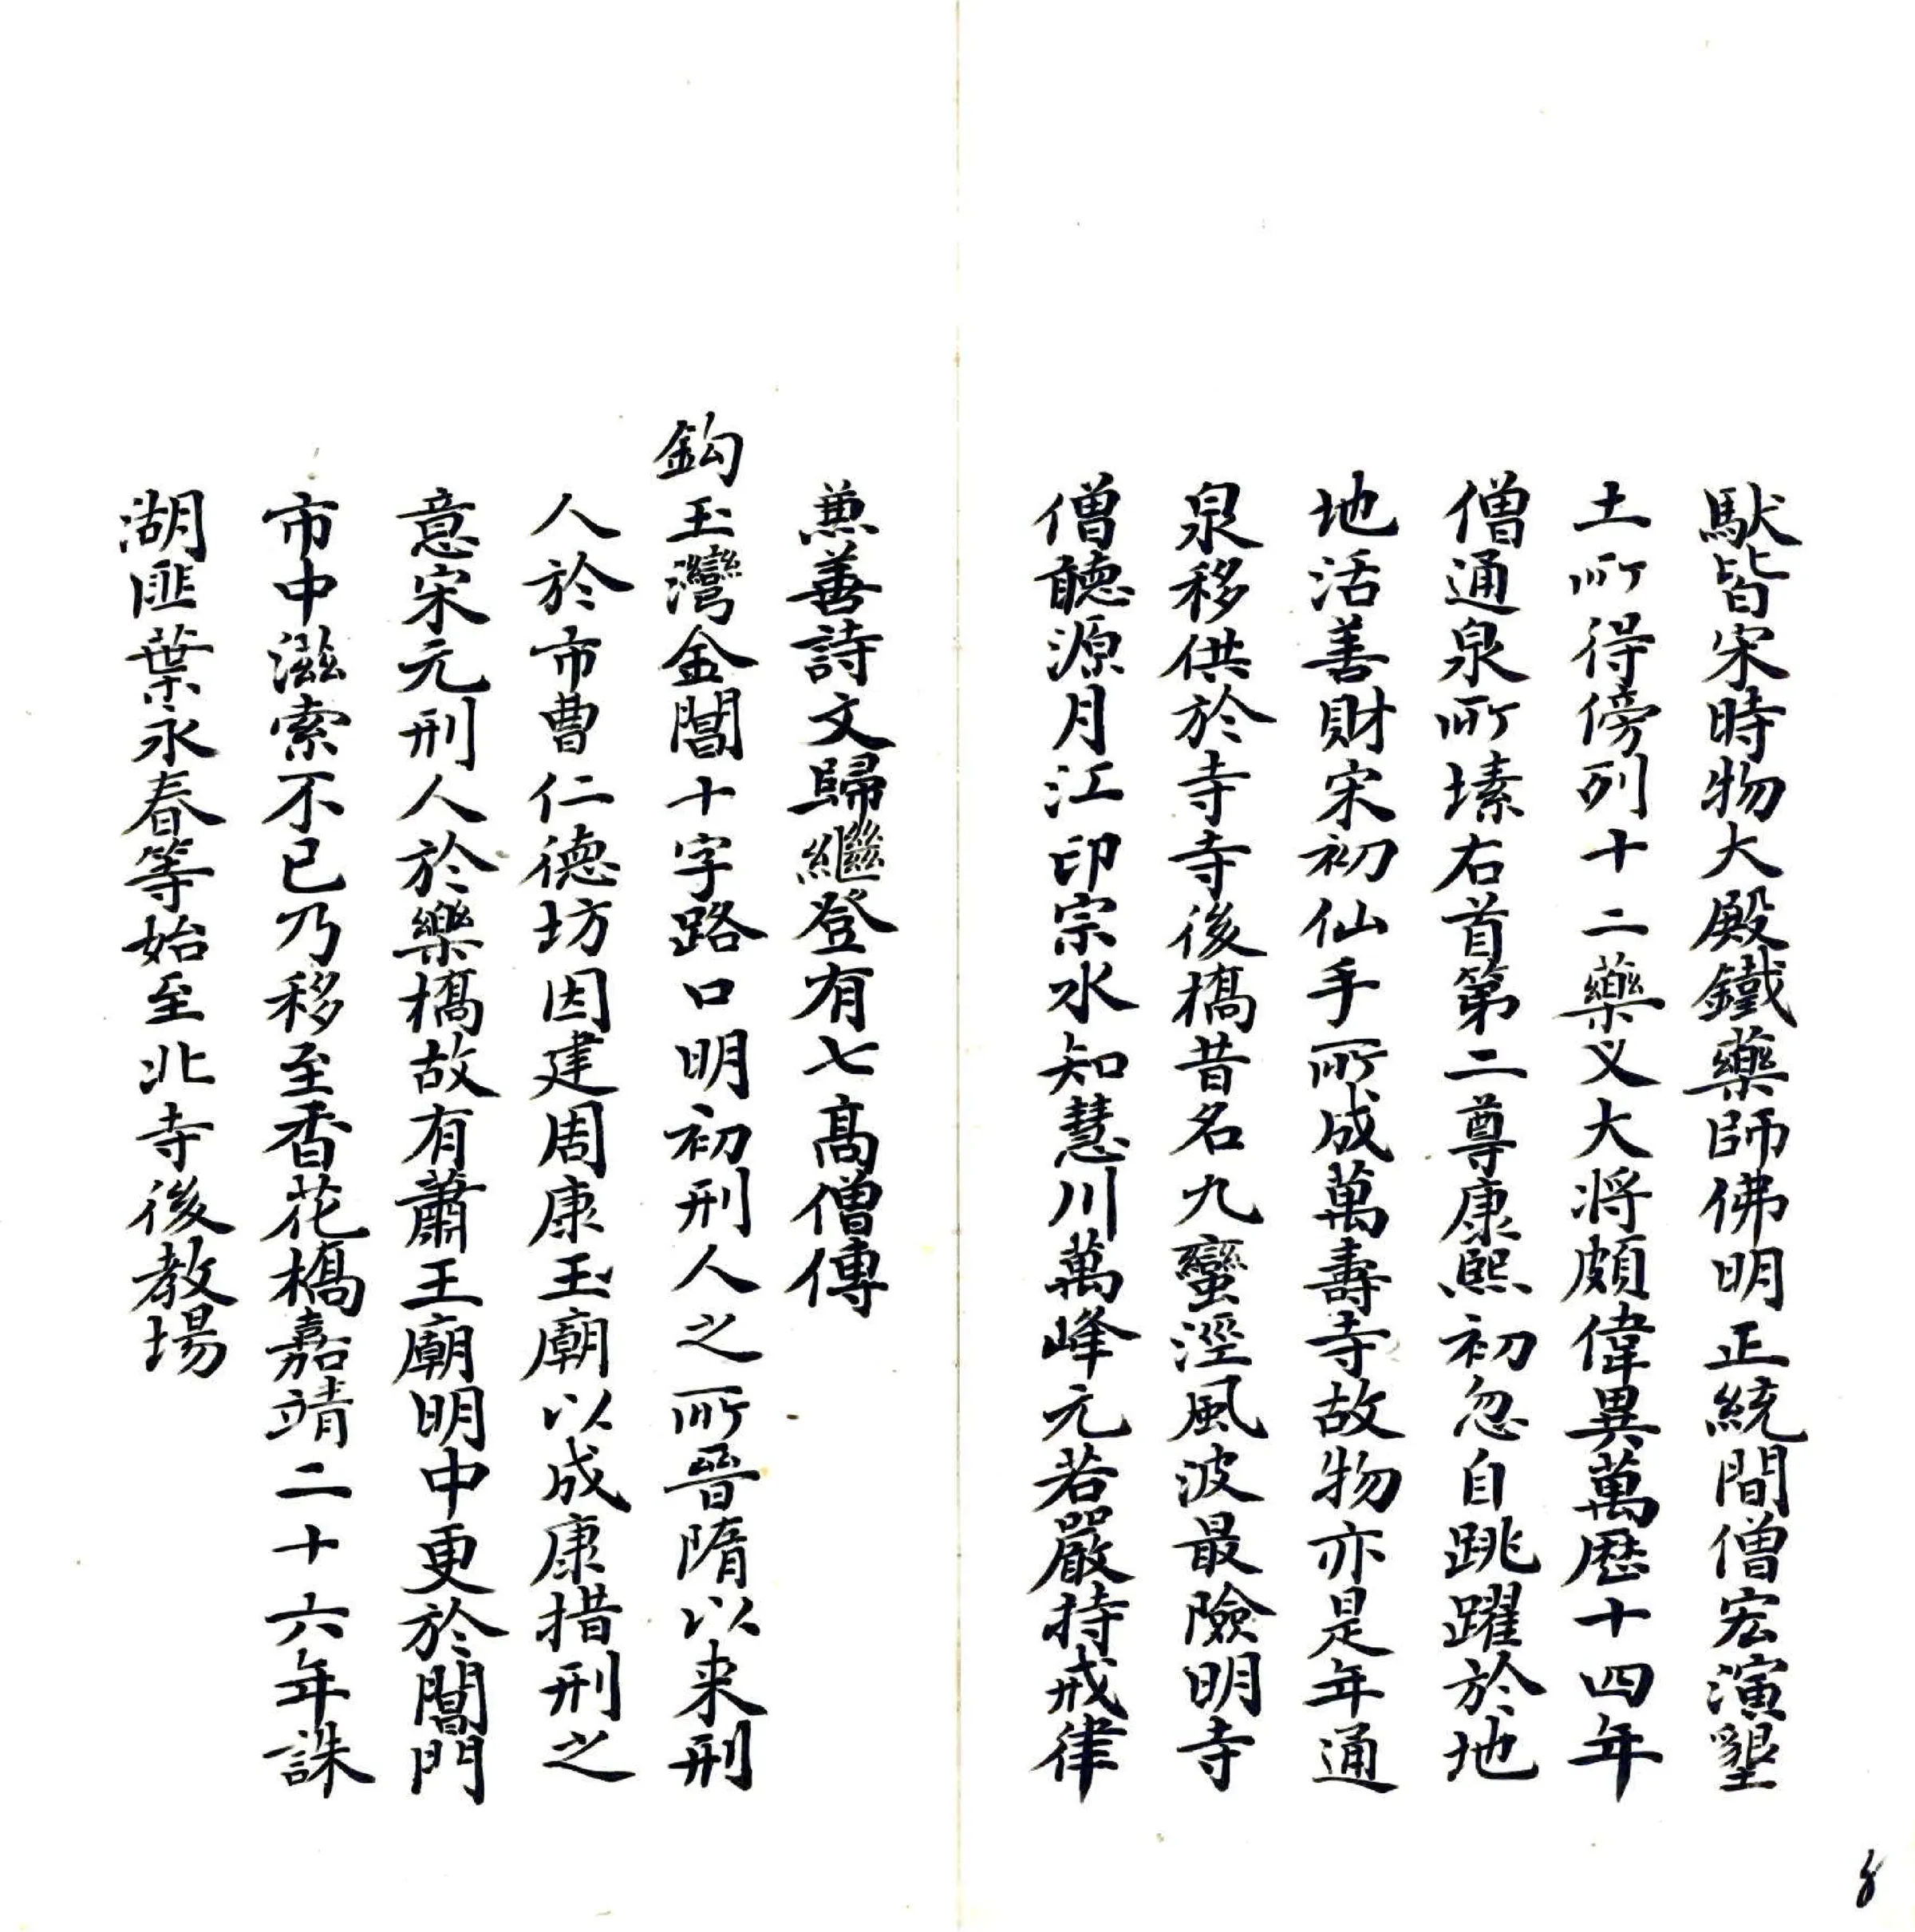 馱皆宋時物大殿鐵藥師佛明正統間僧宏演墾
土所得傍列十二藥义大将頗偉異萬歷十四年
僧通泉所塐右首第二尊康熙初忽自跳躍於地
地活善財宋初仙手所成萬壽寺故物亦是年通
泉移供於寺寺後橋昔名九蠻涇風波最險明寺
僧聽源月江印宗水知慧川萬峰元若嚴持戒律
兼善詩文歸繼登有七髙僧傳
鈎玉灣金閶十字路口明初刑人之所晉隋以来刑
人於市曹仁德坊因建周康王廟以成康措刑之
意宋元刑人於樂橋故有蕭王廟明中更於閶門
市中滋索不已乃移至香花橋嘉靖二十六年誅
湖匪葉永春等始至北寺後教場
8